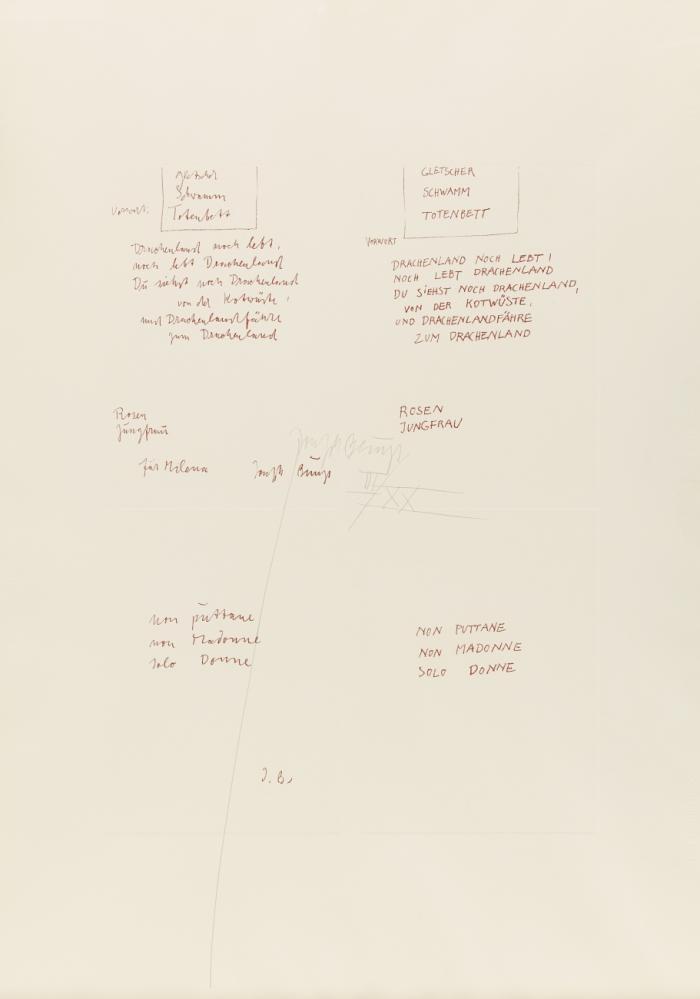 Gletscher
Schwamm
Totenbett
Vorwort:
Drachenland noch lebt,
noch lebt Drachenland
Du siehst noch Drachenland
von der Kotwüste,
und Drachenlandfähre
zum Drachenland
Rosen
Jungfrau
für Milena
Joseph Beuys
non puttane
non Madonne
solo Donne
J. B.
GLETSCHER
SCHWAMM
TOTENBETT
VORWORT
DRACHENLAND NOCH LEBT!
NOCH LEBT DRACHENLAND
DU SIEHST NOCH DRACHENLAND,
VON DER KOTWÜSTE,
UND DRACHENLANDFÄHRE
ZUM DRACHENLAND
ROSEN
JUNGFRAU
Joseph Beuys
VI
XX
NON PUTTANE
NON MADONNE
SOLO DONNE